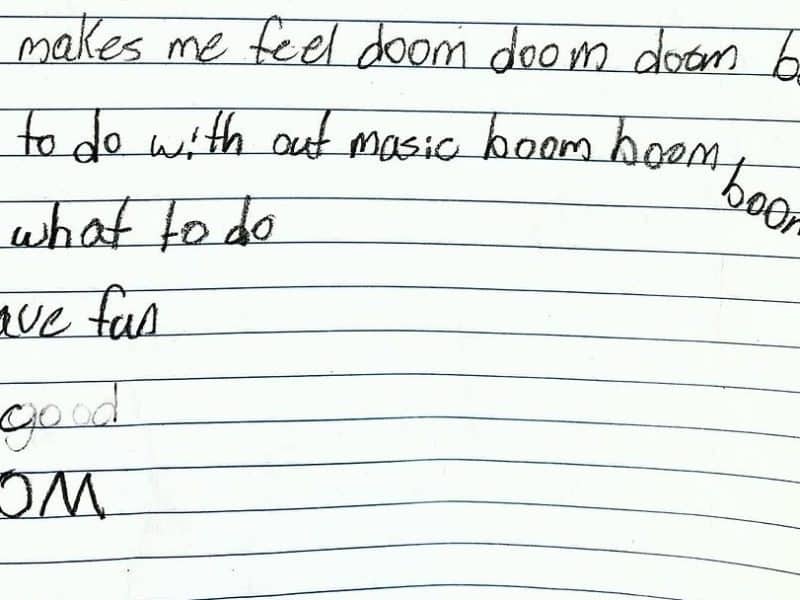 makes me feel doom doom doom b
to do with out masic boom boom boom
what to do
ave fun
good
OM